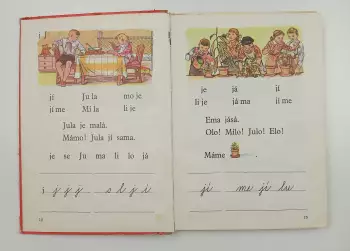 i
jí Ju la mo je
jí me Mi la li je
Jula je malá.
Mámo! Jula jí sama.
je se Ju ma li lo já
i j j j s l j i
je já jí
li je já ma jí me
Ema jásá.
Olo! Milo! Julo! Elo!
Máme .
jí me jí lu